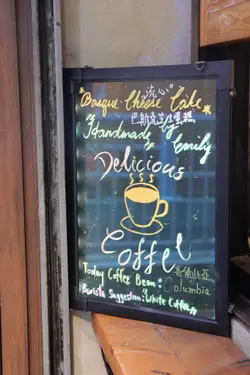 "流心"
Basque Cheese Cake
巴斯克芝士蛋糕
Handmade by Emily
Delicious
Coffee
Today Coffee Bean: 哥倫比亞
Columbia
Barista Suggestion: White Coffee